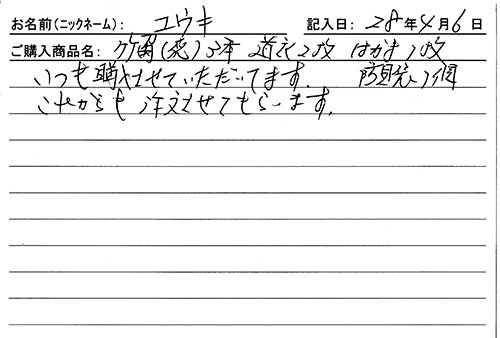 お名前(ニックネーム): ユウキ 記入日: 28年4月6日
ご購入商品名: 竹刀(完)3本 道衣2枚 はかま1枚
いつも購入させていただいてます。 防具袋1個
これからも注文させてもらいます。